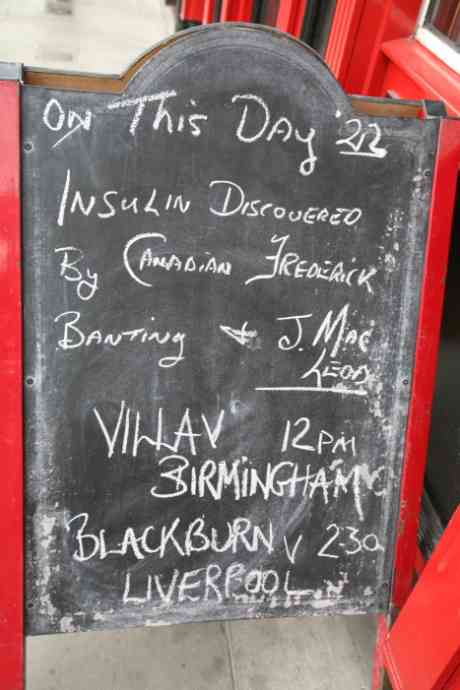 On This Day '22
INSULIN DISCOVERED
By CANADIAN FREDERICK
BANTING & J. Mac
LEOD
VILLA V 12PM
BIRMINGHAM
BLACKBURN V 230
LIVERPOOL